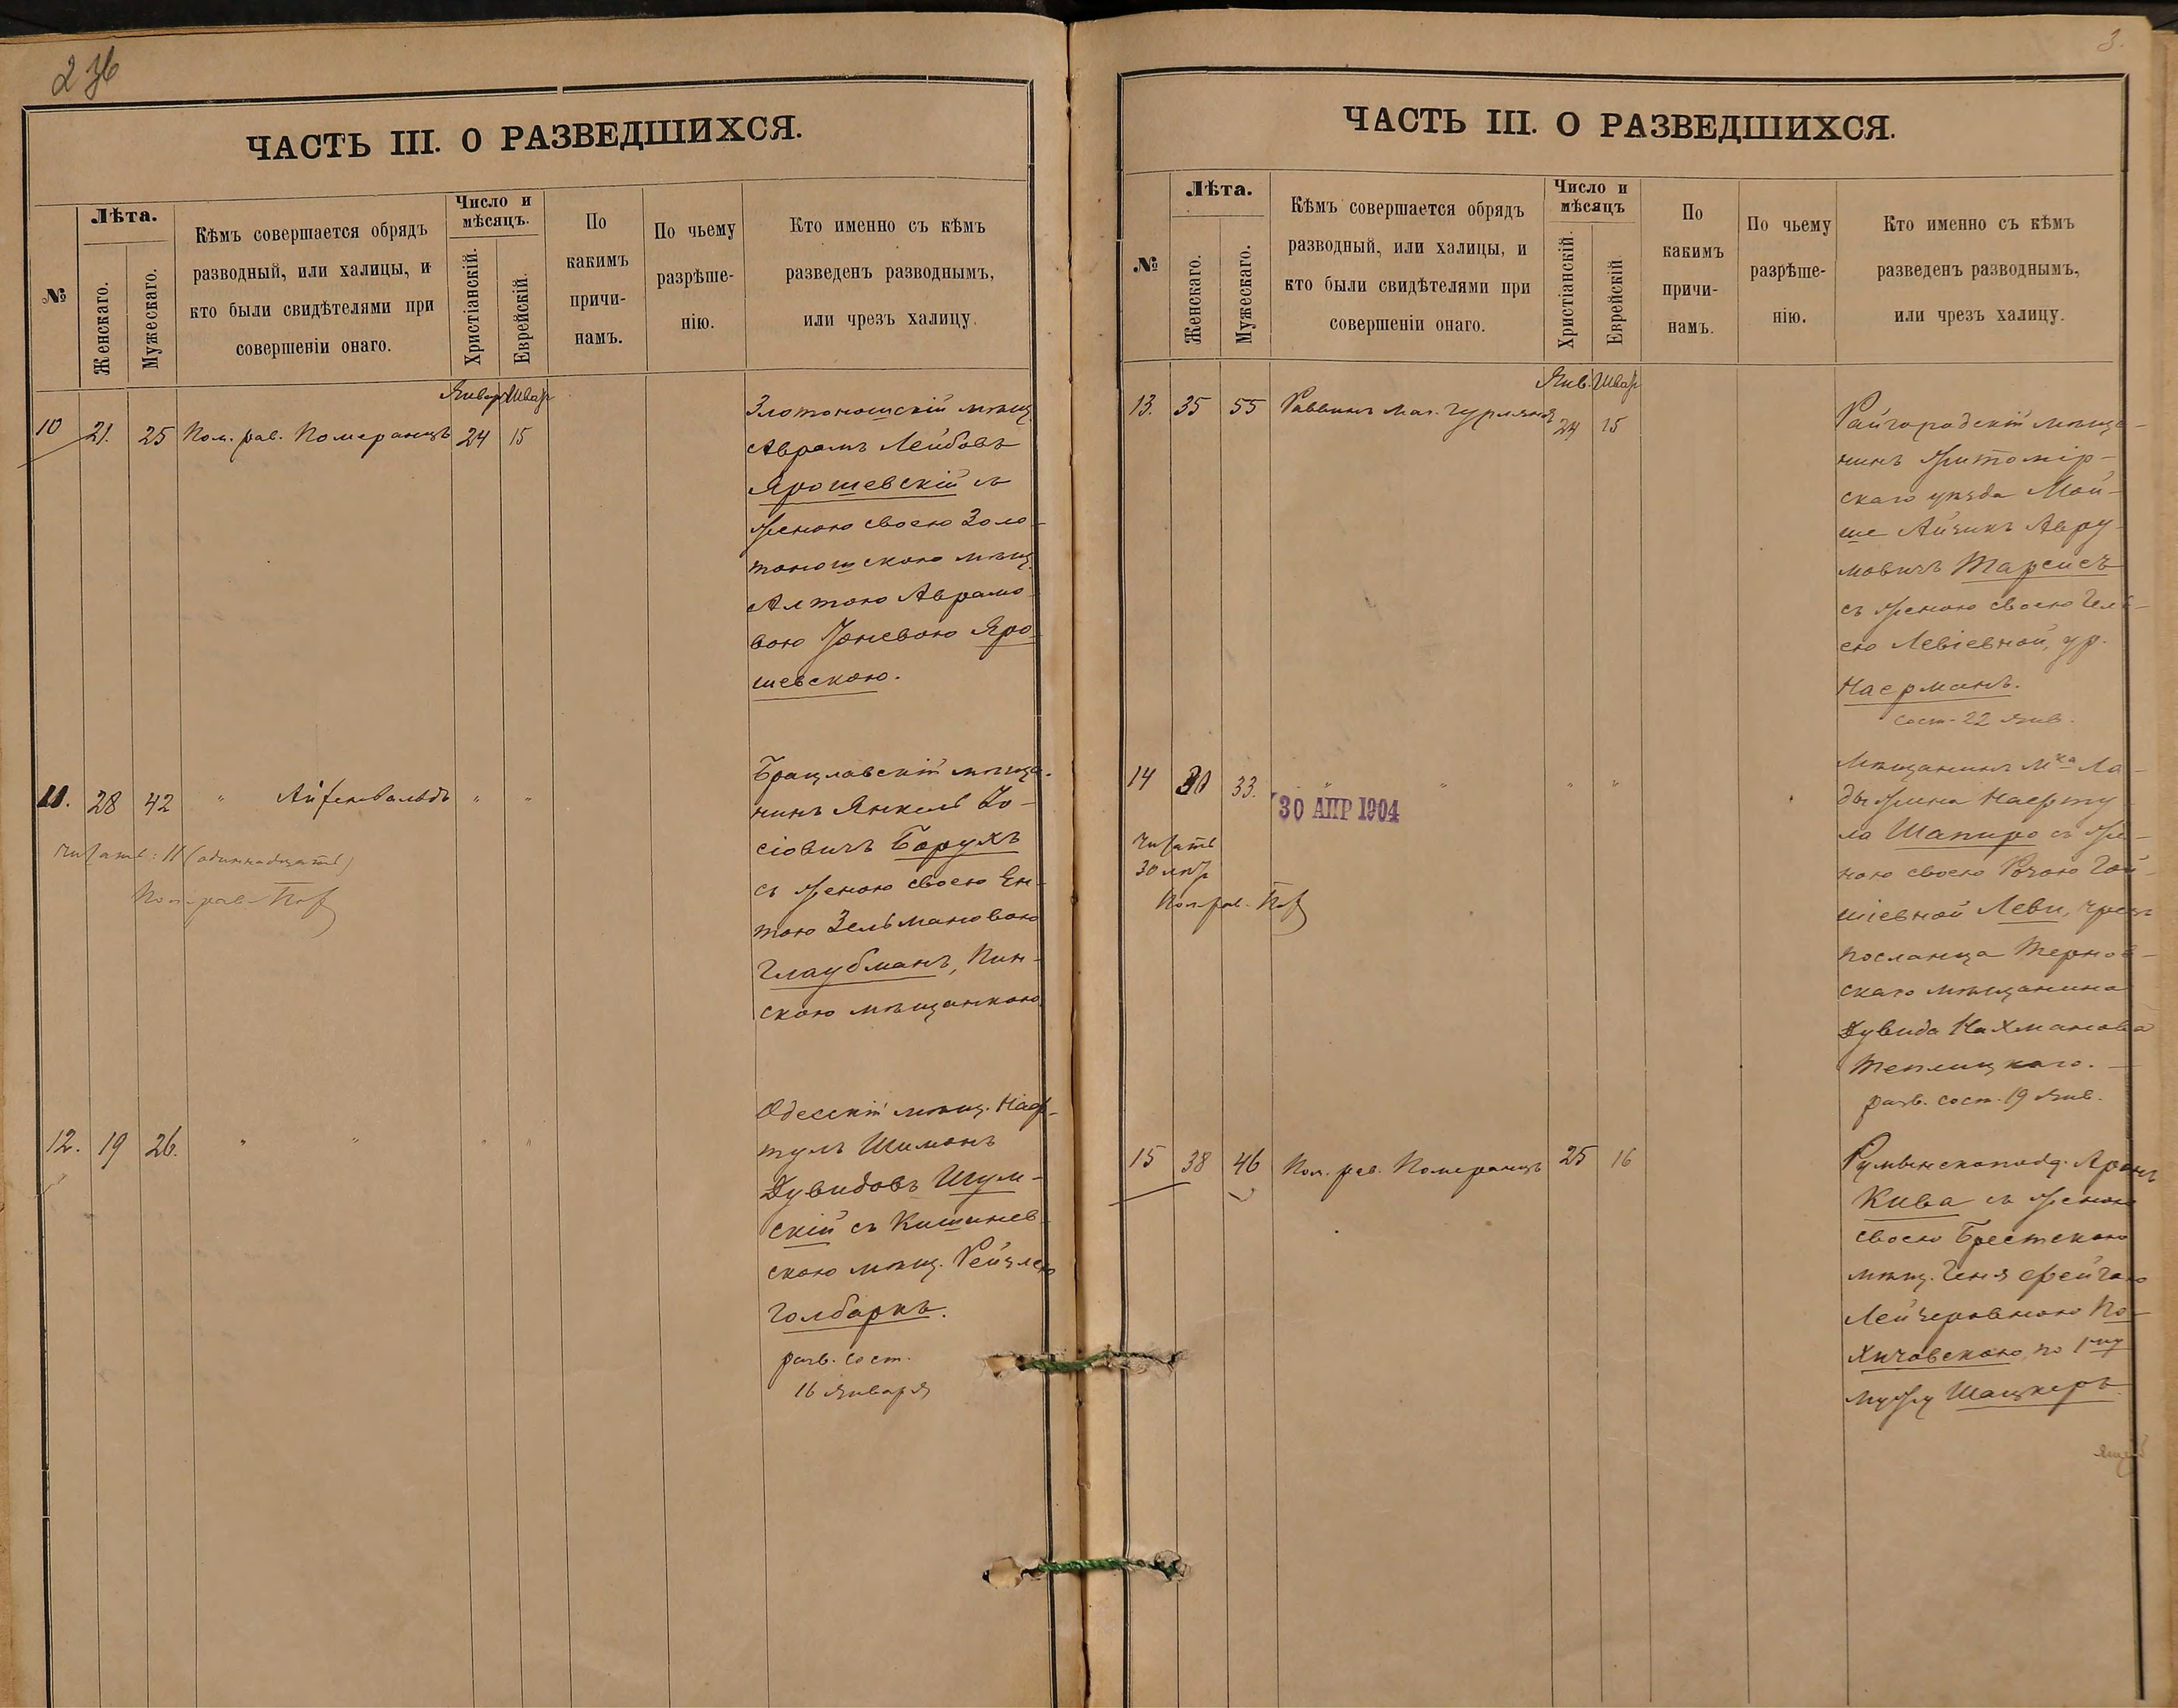 236
ЧАСТЬ III. О РАЗВЕДШИХСЯ.
№
Лѣта.
Женскаго.
Мужескаго.
Кѣмъ совершается обрядъ
разводный, или халицы, и
кто были свидѣтелями при
совершеніи онаго.
Число и
мѣсяцъ.
Христіанскій.
Еврейскій.
По
какимъ
причи-
намъ.
По чьему
разрѣше-
нію.
Кто именно съ кѣмъ
разведенъ разводнымъ,
или чрезъ халицу.
Январ Шват
10 21. 25 Пом. рав. Померанцъ 24 15
Злотоношскій мѣщ.
Аврамъ Лейбовъ
Ярошевскій съ
женою своею Золо-
тоношскою мѣщ.
Алтою Аврамо-
вою Яро-
шевскою.
11. 28 42 " Айзенвальдъ " "
Читать: 11 (одиннадцать)
Пом. рав.
Брацлавскій мѣща-
нинъ Янкель Іо-
сіовичъ Борухъ
съ женою своею Ен-
тою Зельмановою
Глаубманъ, Пин-
скою мѣщанкою
12. 19 26. " " " "
Одесскій мѣщ. Наф-
тулъ Шимонъ
Дувидовъ Шум-
скій съ Кишинев-
скою мѣщ. Рейзлею
Голбаркъ.
разв. сост.
16 января
3.
ЧАСТЬ III. О РАЗВЕДШИХСЯ.
№
Лѣта.
Женскаго.
Мужескаго.
Кѣмъ совершается обрядъ
разводный, или халицы, и
кто были свидѣтелями при
совершеніи онаго.
Число и
мѣсяцъ
Христіанскій.
Еврейскій.
По
какимъ
причи-
намъ.
По чьему
разрѣше-
нію.
Кто именно съ кѣмъ
разведенъ разводнымъ,
или чрезъ халицу.
Янв. Шват
13. 35 55 Раввинъ Мал. Гурлянд 24 15
Райгородскій мѣща-
нинъ Житомір-
скаго уѣзда Мой-
ше Айзикъ Авру-
мовичъ Тарсисъ
съ женою своею Гел-
ею Левіевной, ур.
Наерманъ.
сост. 22 янв.
14 30 33. " " " "
30 АПР 1904
Читать
30 лѣт
Пом. рав.
Мѣщанинъ М-ка Ла-
дыжина Нафту-
ла Шапиро съ же-
ною своею Рохою Гой-
шіевной Леви, чрезъ
посланца Тернов-
скаго мѣщанина
Дувида Нахманова
Теплицкаго.
разв. сост. 19 янв.
15 38 46 Пом. рав. Померанцъ 25 16
Румынскоподд. Аронъ
Кива съ женою
своею Брестскою
мѣщ. Геня Фейгою
Лейзеровною По-
хичовскою, по 1му
мужу Шацкеръ.